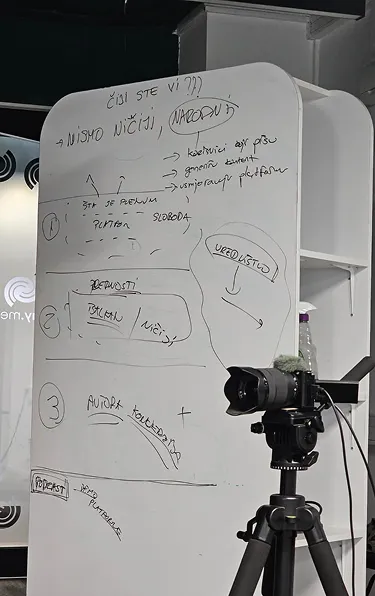 ČIJI STE VI ???
→ NISMO NIČIJI, NARODNI
→ korisnici koji pišu
→ generišu kontent
→ usmjeravaju platformu
① ŠTA JE PLENUM
PLATFORMA SLOBODA
UREDNIŠTVO
② VREDNOSTI
BALKAN / NIČIJI
③ AUTORA +
PODCAST - DEMO
PLATFORME
ay.me